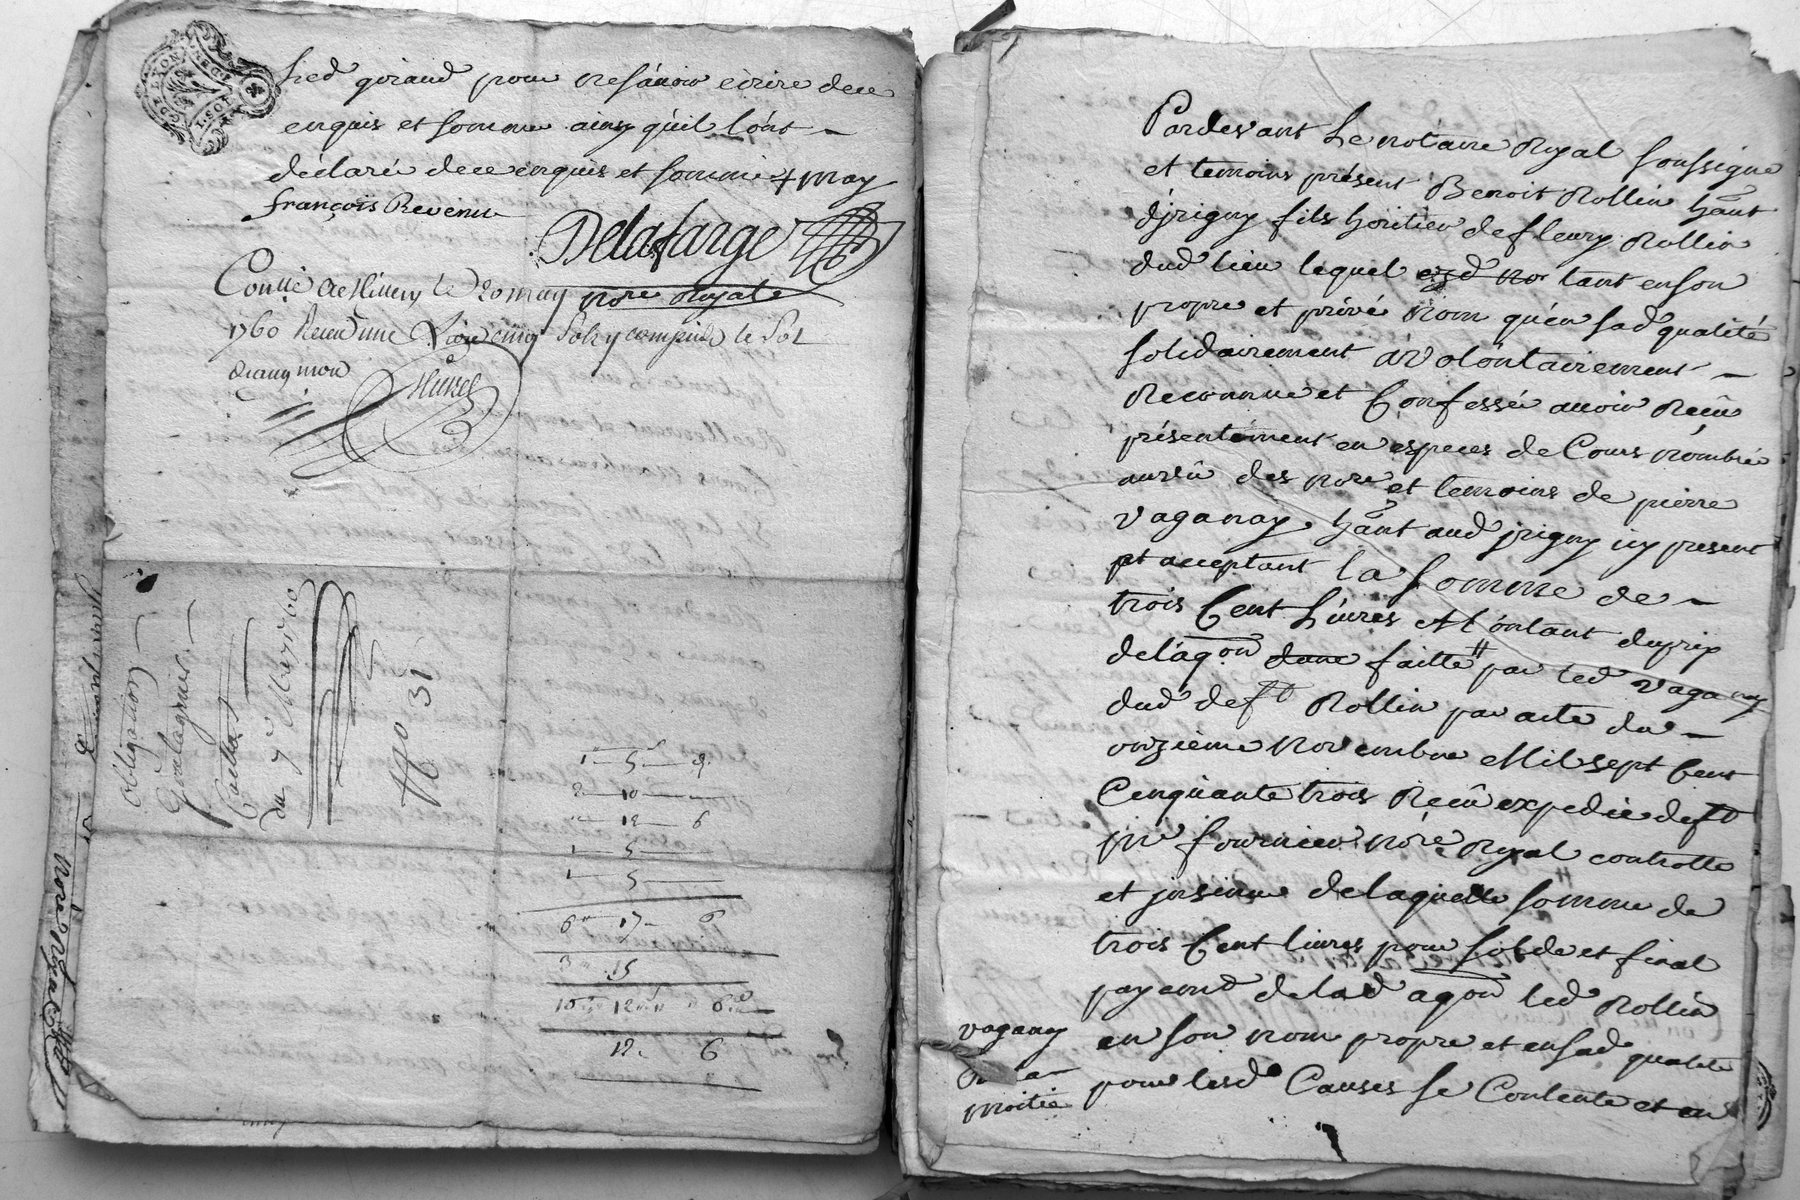 led giraud pour ne sávoir écrire dece
enquis et somme ainsy quíl lónt
déclaré dece enquis et sommé + may
françois Revenu
Delafarge
nore Royale
le 20 may
1760 Receu une cinq Sols y compris le Sol
Obligation
du 7e May 1760
No 31
1 5 9
2 10
12 6
1 5
1 5
6 17 6
3 15
10 12 6d
12 6
nore Royal
Pardevant Le notaire Royal soussigne
et temoins présent Benoit Rollin hãnt
djrigny fils héritier de fleury Rollin
dud lieu lequel tant en son
propre et privé nom qúen sad qualité
solidairement a volóntairement
Reconnu et Confessé auoir Reçu
présentement en especes de Cours nómbré
au vû des nore et temoins de pierre
vaganay hãnt aud jrigny icy present
et acceptant la somme de
trois Cent Livres et tóntant du prix
delaq.on faitte par led vaganay
dud deft Rollin par acte du
onzieme Novembre Mil sept Cent
Cinquante trois Reçu expedié deft
me fournier nore Royal controlle
et jnsinue delaquelle somme de
trois Cent livres pour solde et final
payemd delad aqon led Rollin
en son nom propre et en sad qualité
pour lesd Causes se Contente et en
vaganay
moitié